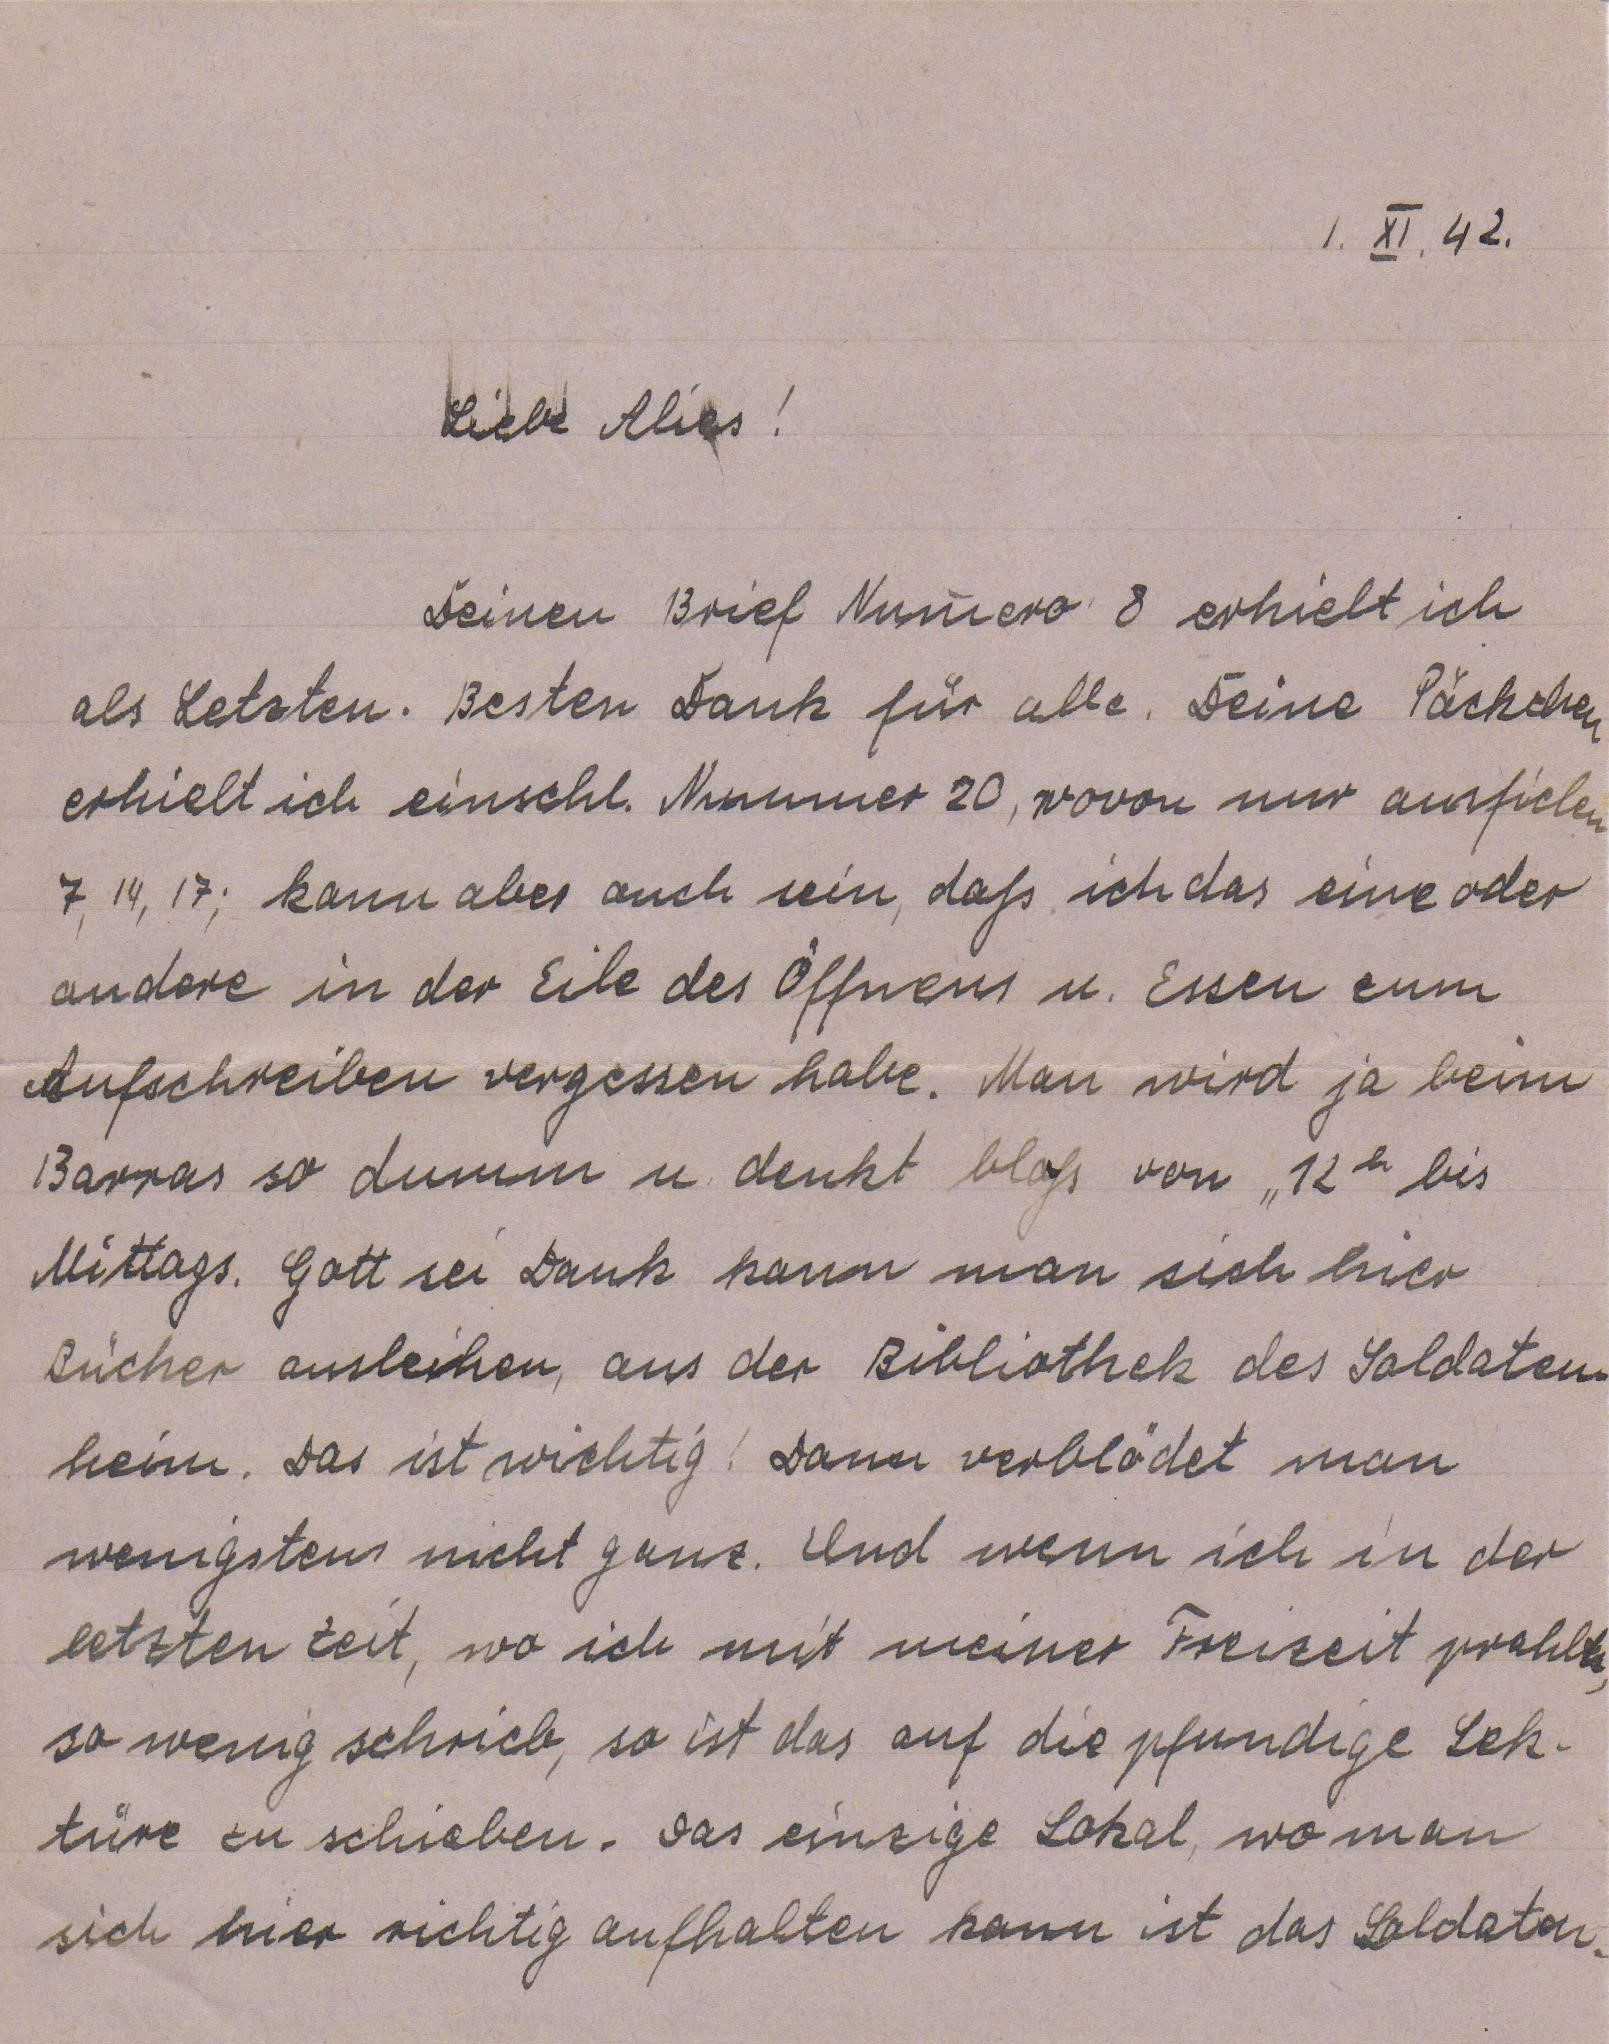 1. XI. 42.
Liebe Alies!
Deinen Brief Num̄ero 8 erhielt ich
als Letzten. Besten Dank für alle. Deine Päckchen
erhielt ich einschl. Nummer 20, wovon nur ausfielen
7, 14, 17; kann aber auch sein, daß ich das eine oder
andere in der Eile des Öffnens u. Essen zum
Aufschreiben vergessen habe. Man wird ja beim
Barras so dumm u. denkt bloß von „12 h bis
Mittags. Gott sei Dank kann man sich hier
Bücher ausleihen, aus der Bibliothek des Soldaten-
heim. Das ist wichtig! Dann verblödet man
wenigstens nicht ganz. Und wenn ich in der
letzten Zeit, wo ich mit meiner Freizeit prahlte,
so wenig schrieb, so ist das auf die pfundige Lek-
türe zu schieben. Das einzige Lokal, wo man
sich hier richtig aufhalten kann ist das Soldaten-